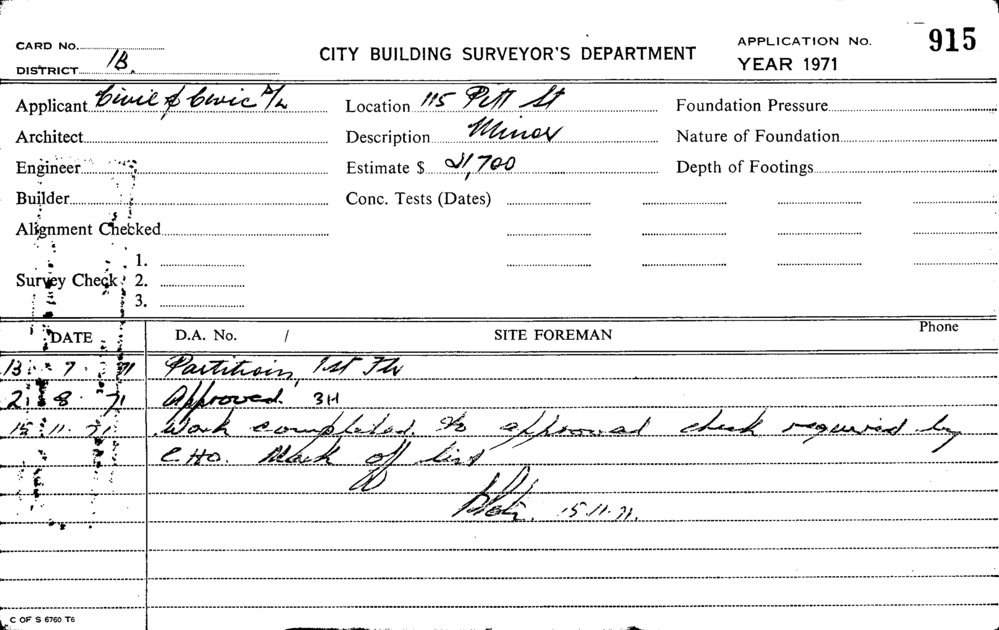 CARD No.
DISTRICT 1B.
CITY BUILDING SURVEYOR'S DEPARTMENT
APPLICATION No. 915
YEAR 1971
Applicant Civil & Civic P/L
Location 115 Pitt St
Foundation Pressure
Architect
Description Minor
Nature of Foundation
Engineer
Estimate $ 21,700
Depth of Footings
Builder
Conc. Tests (Dates)
Alignment Checked
Survey Check
1.
2.
3.
DATE
D.A. No. /
SITE FOREMAN
Phone
13 7 71 Partitions, 1st Flr
2 8 71 Approved. 3H
15 11 71 Work completed to approval check required by
C.H.O. Mark off list
15.11.71.
C OF S 6760 T6